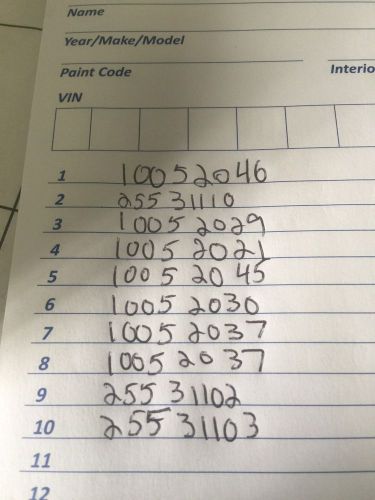 Name
Year/Make/Model
Paint Code Interio
VIN
1 10052046
2 25531110
3 10052029
4 10052021
5 10052045
6 10052030
7 10052037
8 10052037
9 25531102
10 25531103
11
12